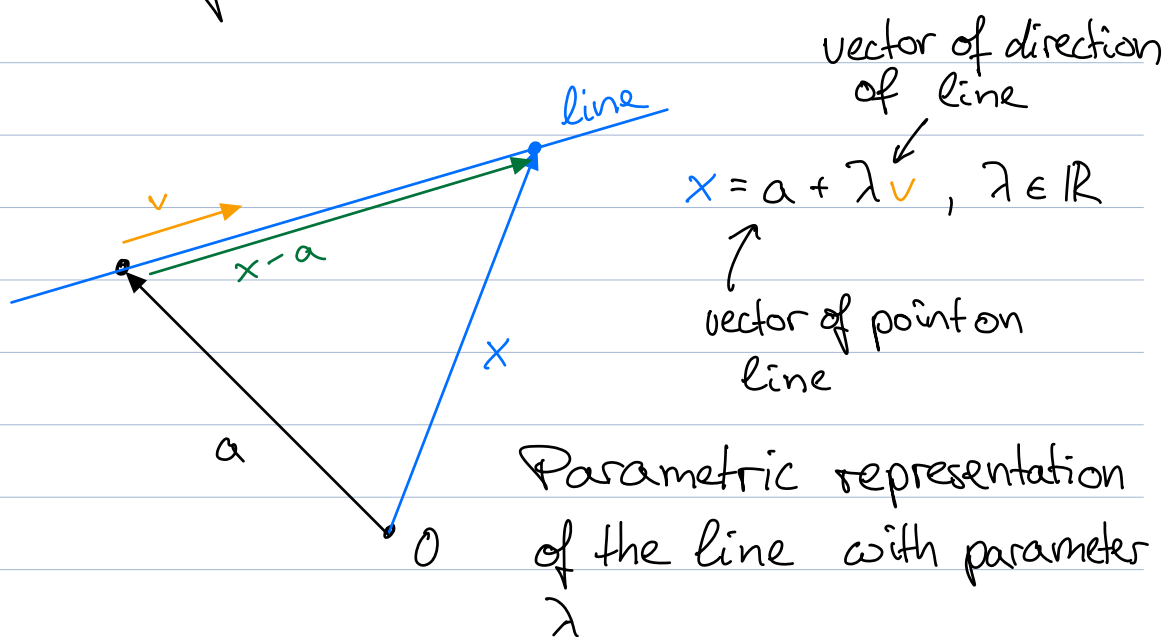 vector of direction
of line
line
x = a + λv , λ ∈ ℝ
v
x - a
vector of point on
line
x
a
Parametric representation
of the line with parameter
λ
O